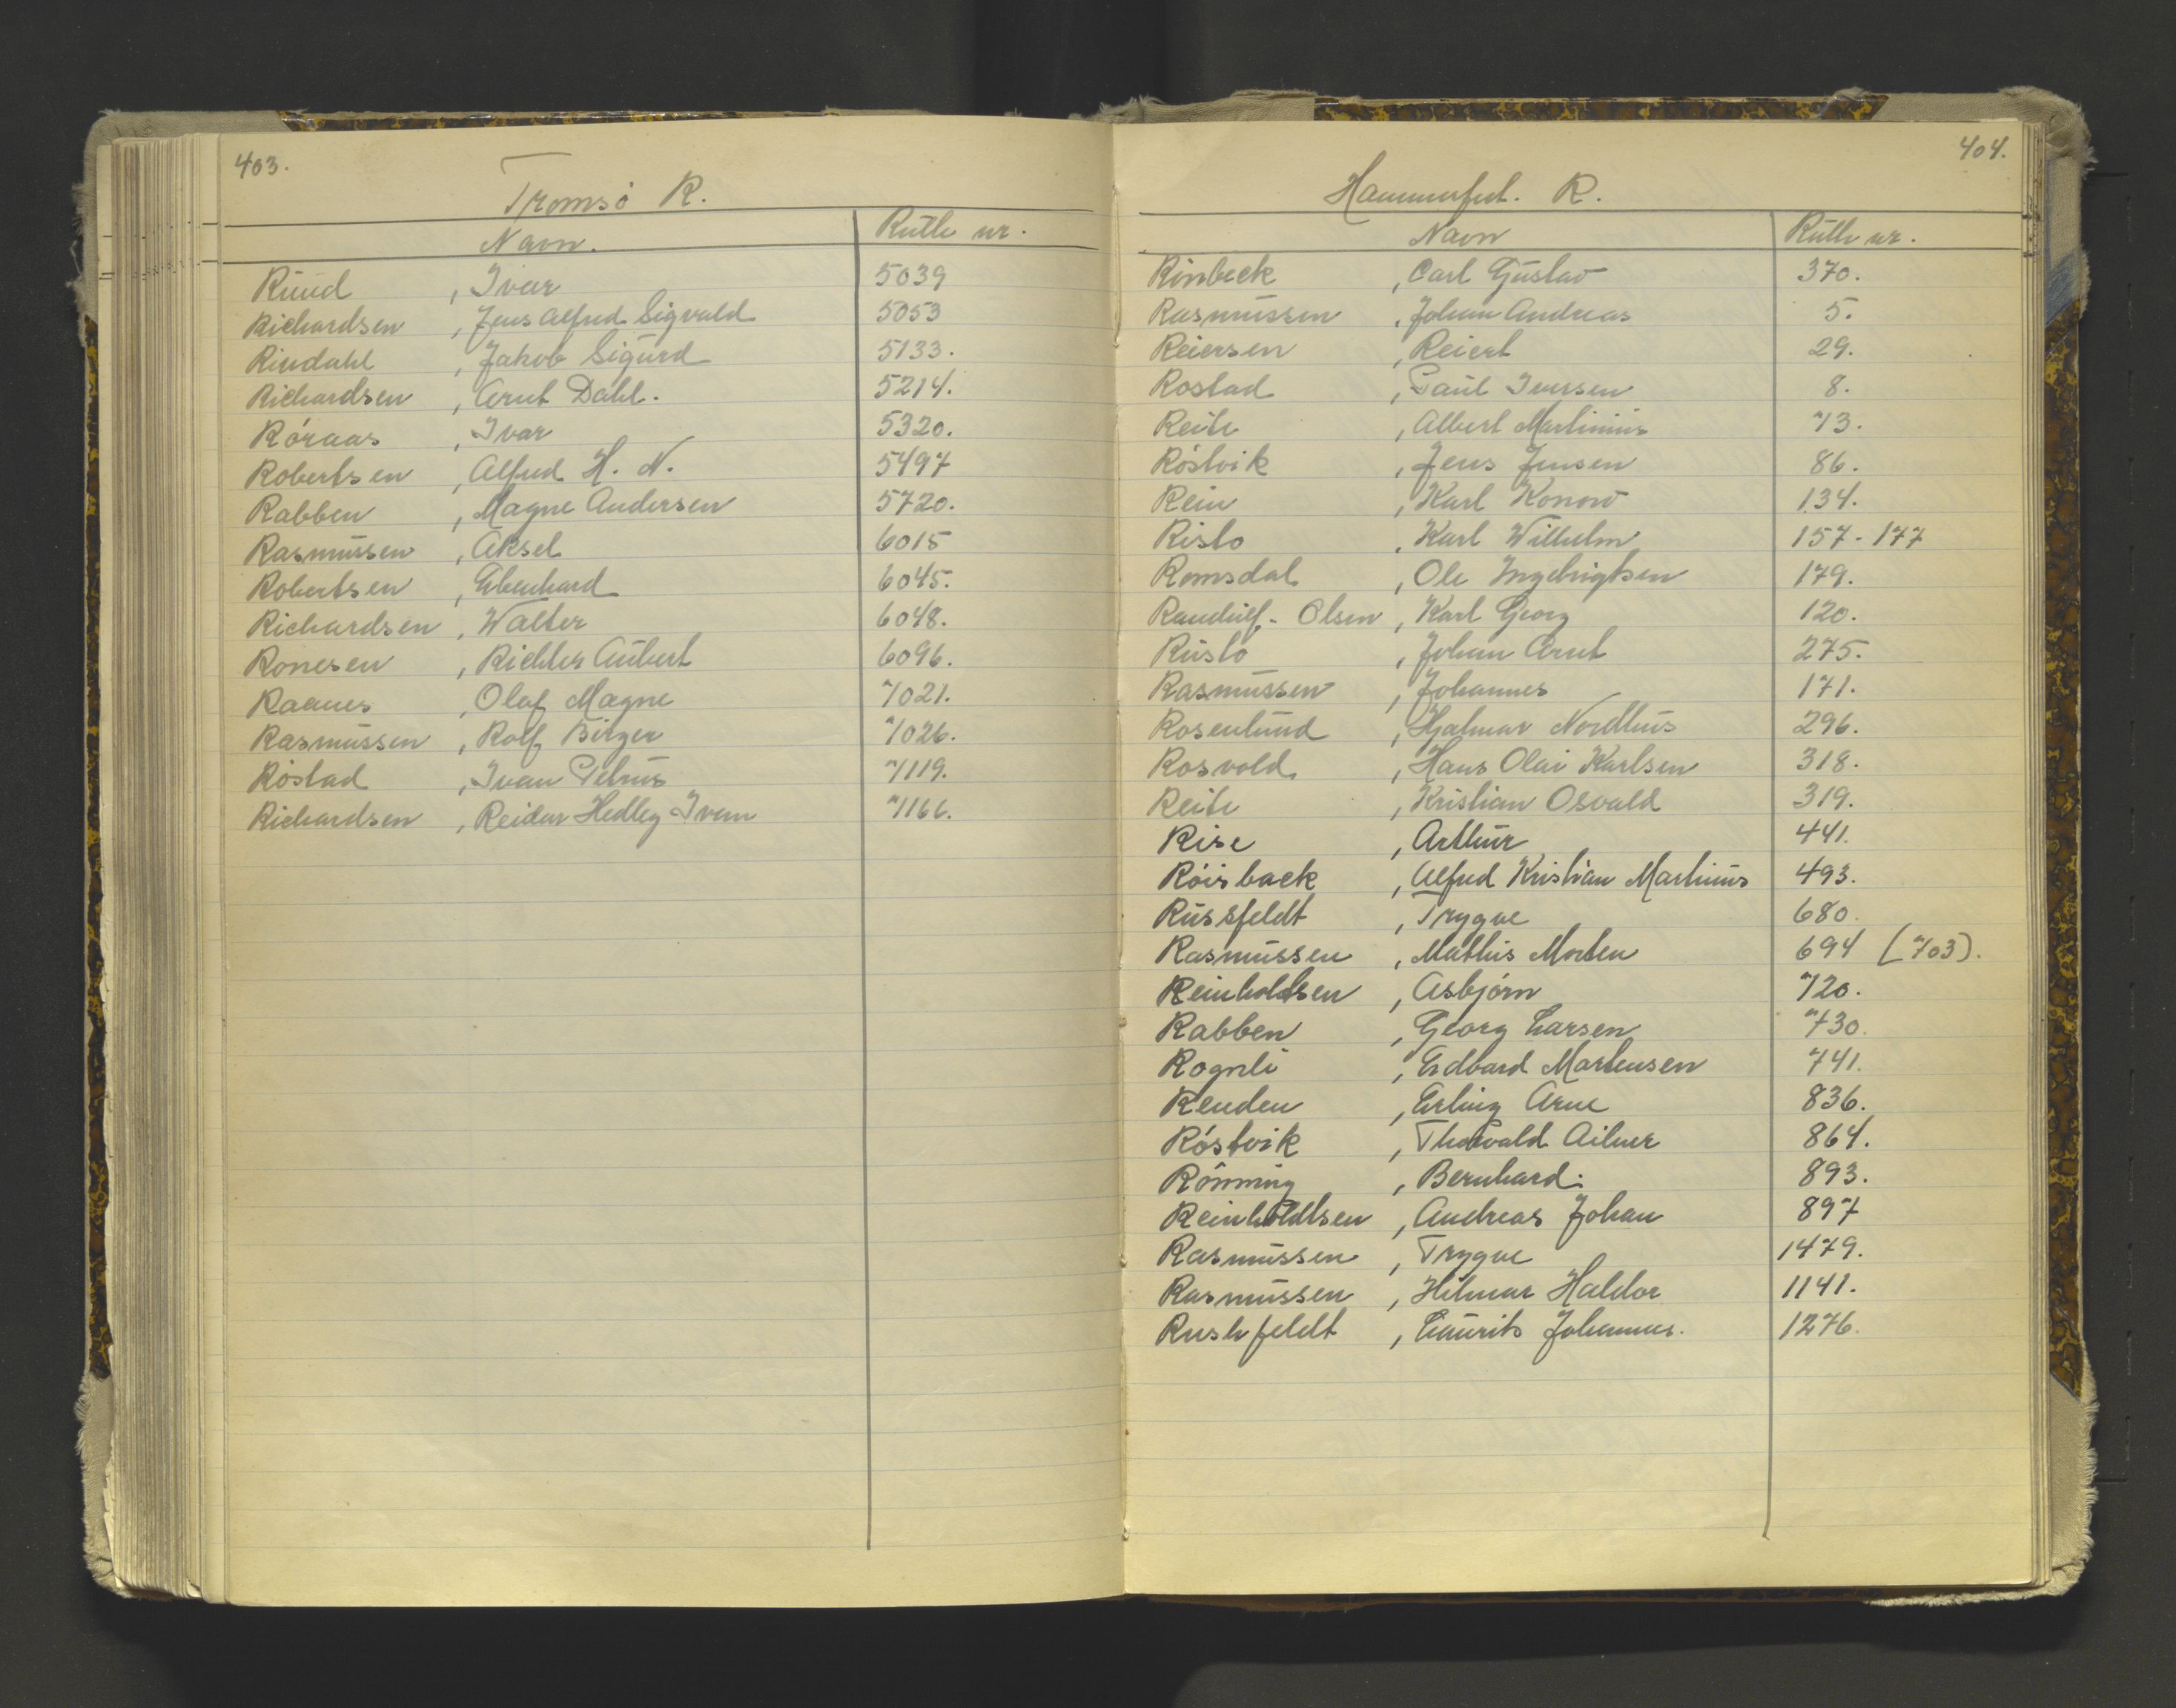 403.
Tromsö R.
Navn. Rulle nr.
Ruud, Ivar 5039
Richardsen, Jens Alfred Sigvald 5053
Rindahl, Jakob Sigurd 5133.
Richardsen, Arnt Dahl. 5214.
Röraas, Ivar 5320.
Robertsen, Alfred H. N. 5497
Rabben, Magne Andersen 5720.
Rasmussen, Aksel 6015
Robertsen, Edenhard 6045.
Richardsen, Walter 6048.
Ronesen, Richter Aubert 6096.
Raanes, Olaf Magne 7021.
Rasmussen, Rolf Birger 7026.
Röstad, Ivan Petrus 7119.
Richardsen, Reidar Hedley Ivan 7166.
404.
Hammerfest. R.
Navn Rulle nr.
Rinbeck, Carl Gustav 370.
Rasmussen, Johan Andreas 5.
Reiersen, Reiert 29.
Rostad, Paul Iversen 8.
Reite, Albert Martinius 73.
Röstvik, Jens Jensen 86.
Rein, Karl Konow 134.
Risto, Karl Wilhelm 157-177
Romsdal, Ole Ingebrigtsen 179.
Randulf-Olsen, Karl Georg 120.
Rustö, Johan Arnt 275.
Rasmussen, Johannes 171.
Rosenlund, Hjalmar Nordhus 296.
Rosvold, Hans Olai Karlsen 318.
Reite, Kristian Osvald 319.
Rise, Arthur 441.
Röisback, Alfred Kristian Martinus 493.
Russfeldt, Trygve 680.
Rasmussen, Mathis Morten 694 (703).
Reinholdtsen, Asbjörn 720.
Rabben, Georg Larsen 730.
Rognli, Edvard Martensen 741.
Renden, Erling Arne 836.
Röstvik, Thorvald Ailner 864.
Rönning, Bernhard. 893.
Reinholdtsen, Andreas Johan 897
Rasmussen, Trygve 1479.
Rasmussen, Hilmar Haldor 1141.
Rushfeldt, Laurits Johannes. 1276.